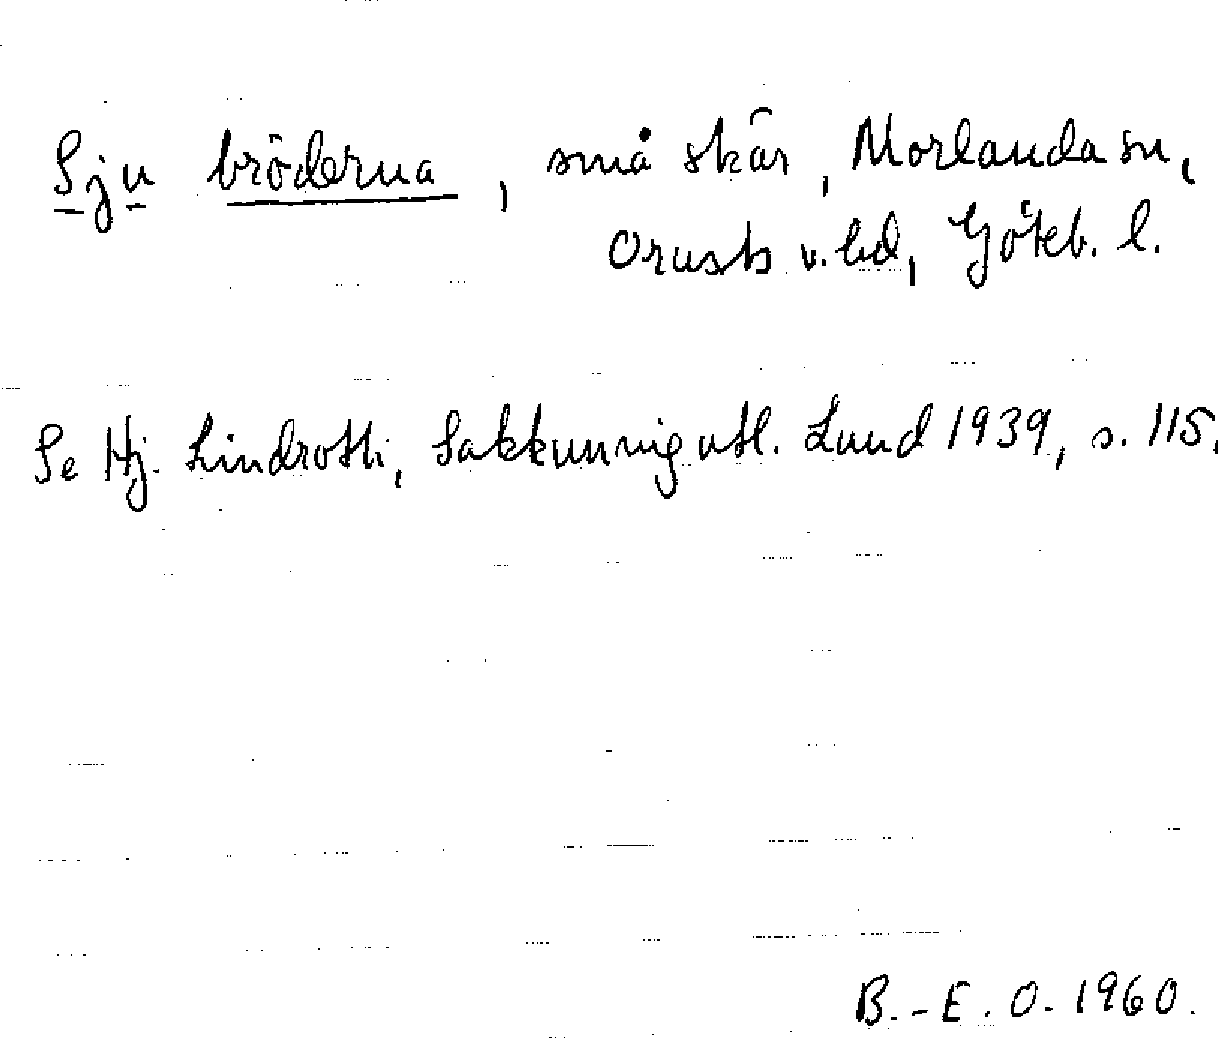 Sju bröderna, små skär, Morlanda sn,
Orusts v. hd, Göteb. l.
Se Hj. Lindroth, Sakkunnigutl. Lund 1939, s. 115.
B.-E. O. 1960.